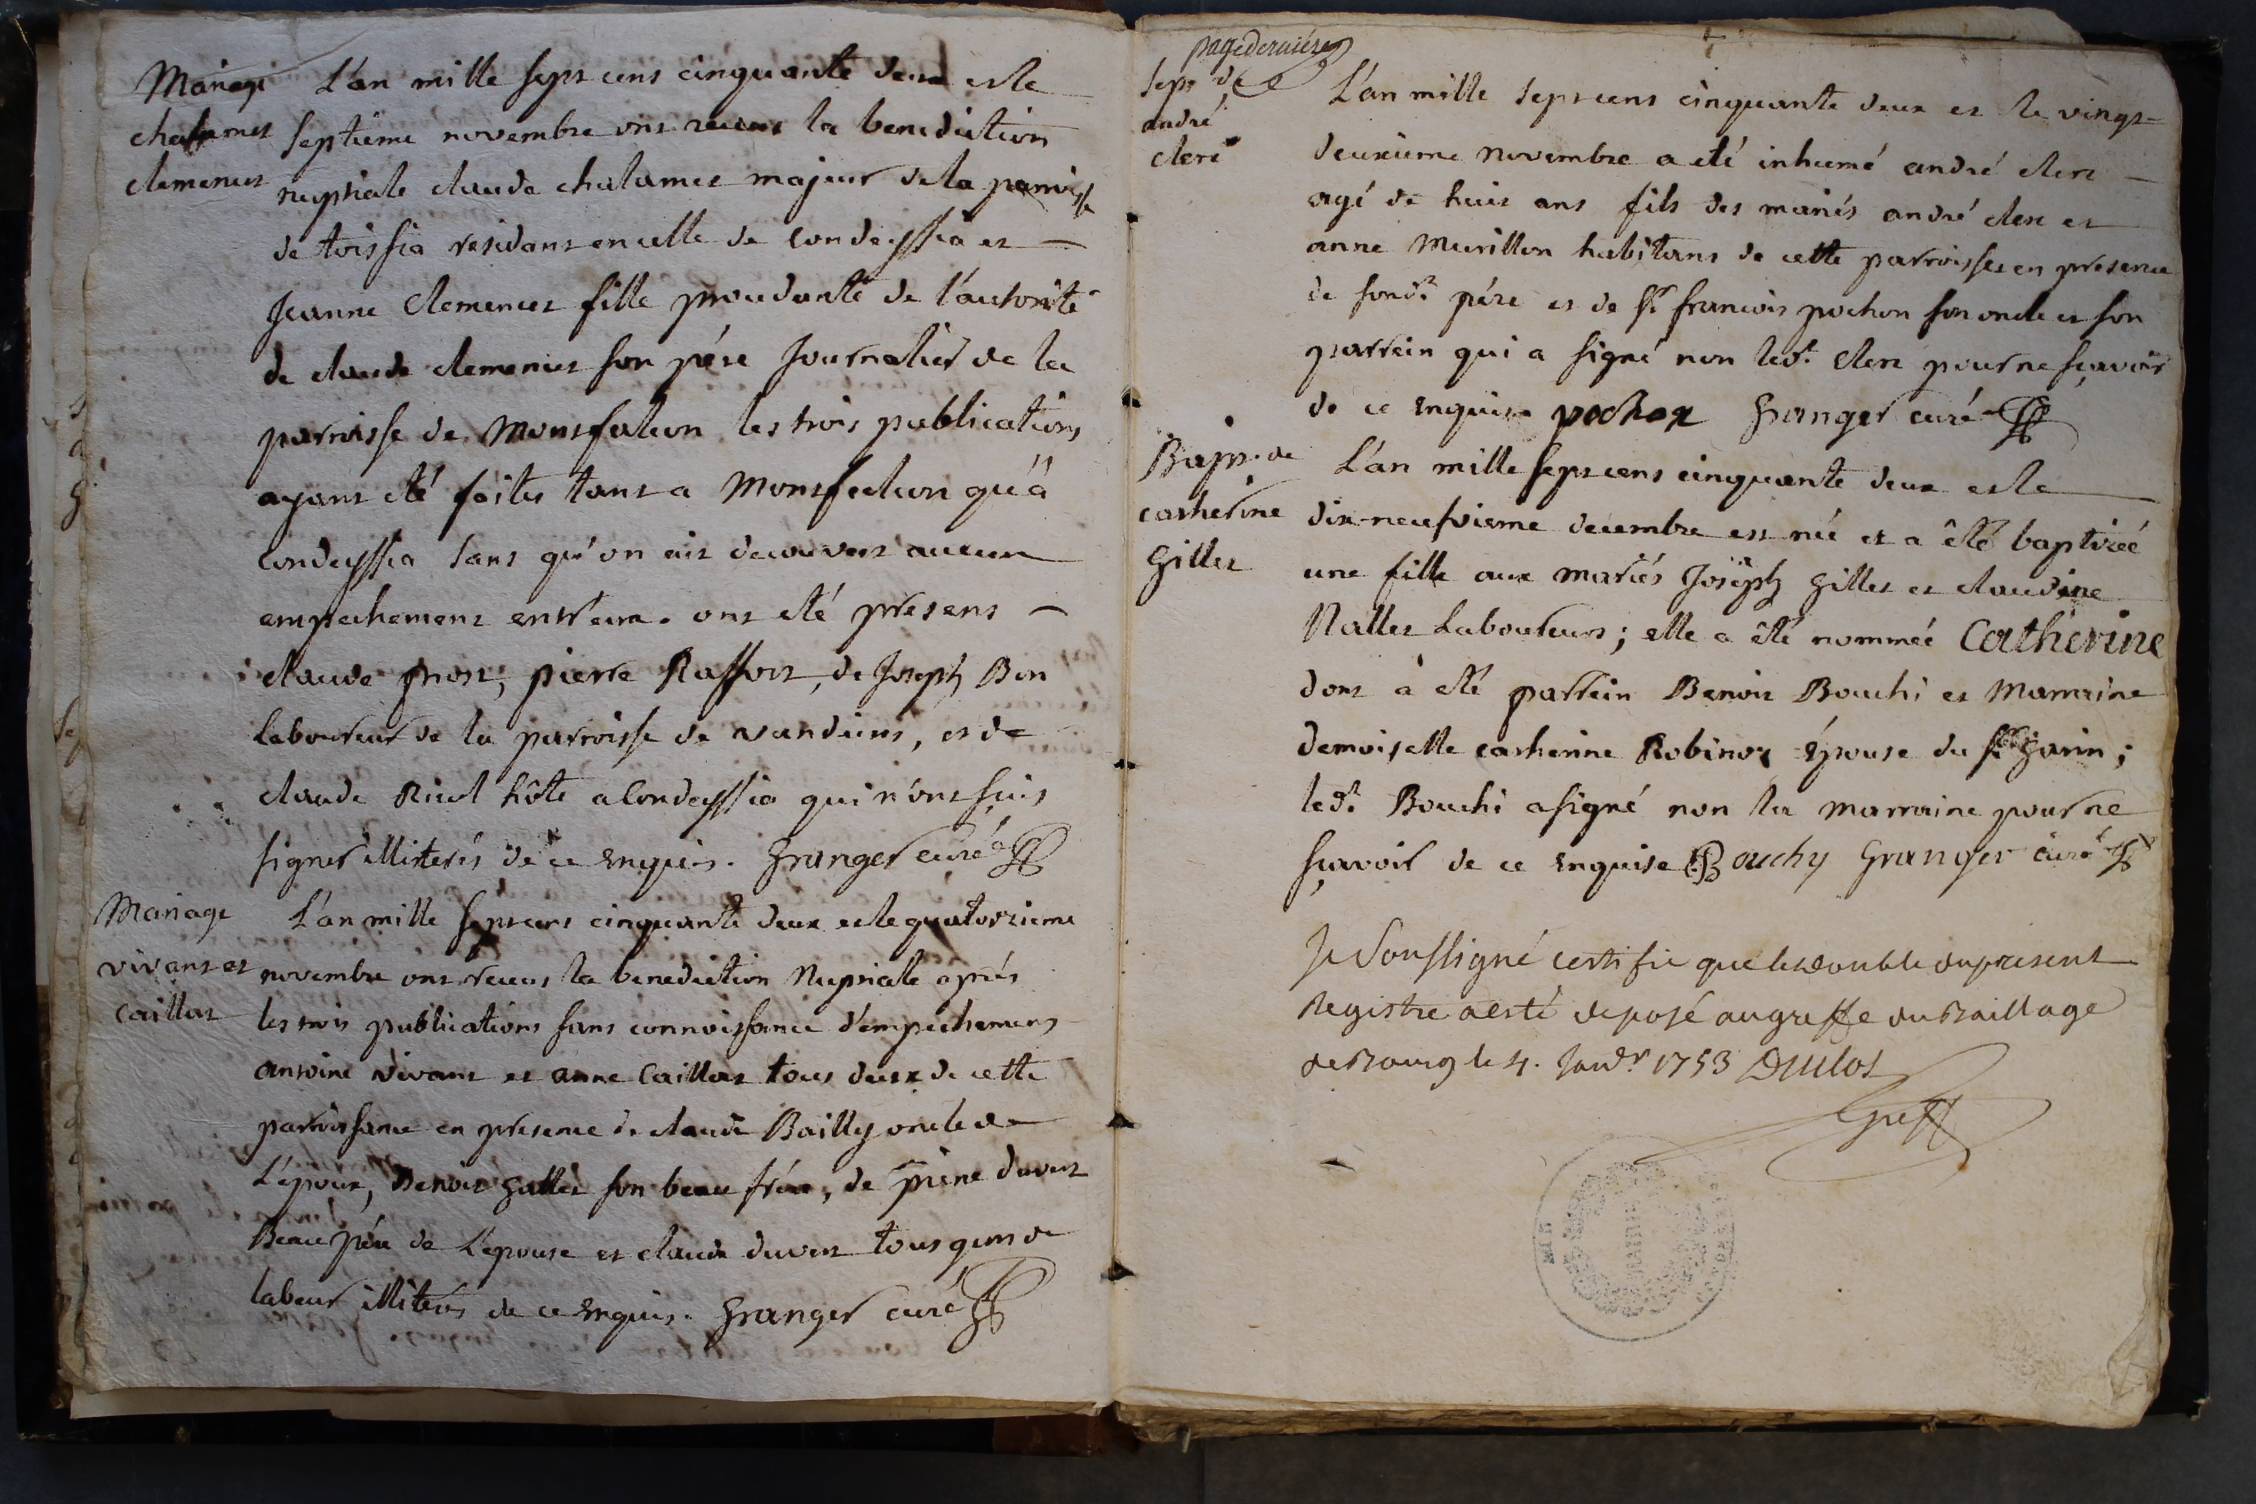 Mariage
chalamet
clemencet
L'an mille sept cens cinquante deux et le
septième novembre ont receus la benediction
nuptiale claude chalamet majeur de la paroisse
de toissia residant en celle de Condeyssia et
Jeanne Clemencet fille procedante de l'autorité
de claude clemencet son pére Journalier de la
parroisse de Montfalcon les trois publications
ayant eté faites tant a Montfalcon qu'à
Condeyssia sans qu'on ait decouvert aucun
empechement entr'eux. ont eté presens
claude prost, pierre Raffort, de Joseph Bon
laboureur de la parroisse de vandeins, et de
claude Riol hôte a Condeyssia qui n'ont sçus
signer illiterés de ce enquis. Granger curé
Mariage
vivant et
caillat
L'an mille sept cens cinquante deux et le quatorzieme
novembre ont receus la benediction Nuptiale aprés
les trois publications sans connoissance d'empechement
antoine vivant et anne Caillat tous deux de cette
parroissance en presence de claude Bailly oncle de
L'époux, Benoit gallet son beau frére, de pierre duvert
Beau pére de L'epouse et claude duvert tous gens de
labeur illiterés de ce enquis. Granger curé
page derniére
sep.re de
andré
clerc
L'an mille sept cens cinquante deux et le vingt-
deuxieme novembre a eté inhumé andré clerc
agé de huit ans fils des mariés andré clerc et
anne Murillon habitans de cette parroisse en presence
de sond.t pére et de S.r francois pochon son oncle et son
parrein qui a signé non led.t clerc pour ne sçavoir
de ce enquis pochon Granger curé
Bapt. de
catherine
Gillet
L'an mille sept cens cinquante deux et le
dix-neufvieme decembre est née et a êté baptizeé
une fille aux mariés Joseph Gillet et claudine
Nallet Laboureurs; elle a êté nommeé Catherine
dont à eté parrein Benoit Bouchi et Marraine
demoiselle catherine Robinot épouse du S.r Garin;
led.t Bouchi a signé non la marraine pour ne
sçavoir de ce enquise Bouchy Granger curé
Je Soussligné certifie que le double du present
Registre a esté deposé au greffe du Baillage
de Bourg le 4. Janv.r 1753 Duclos
Greff
MAIRIE